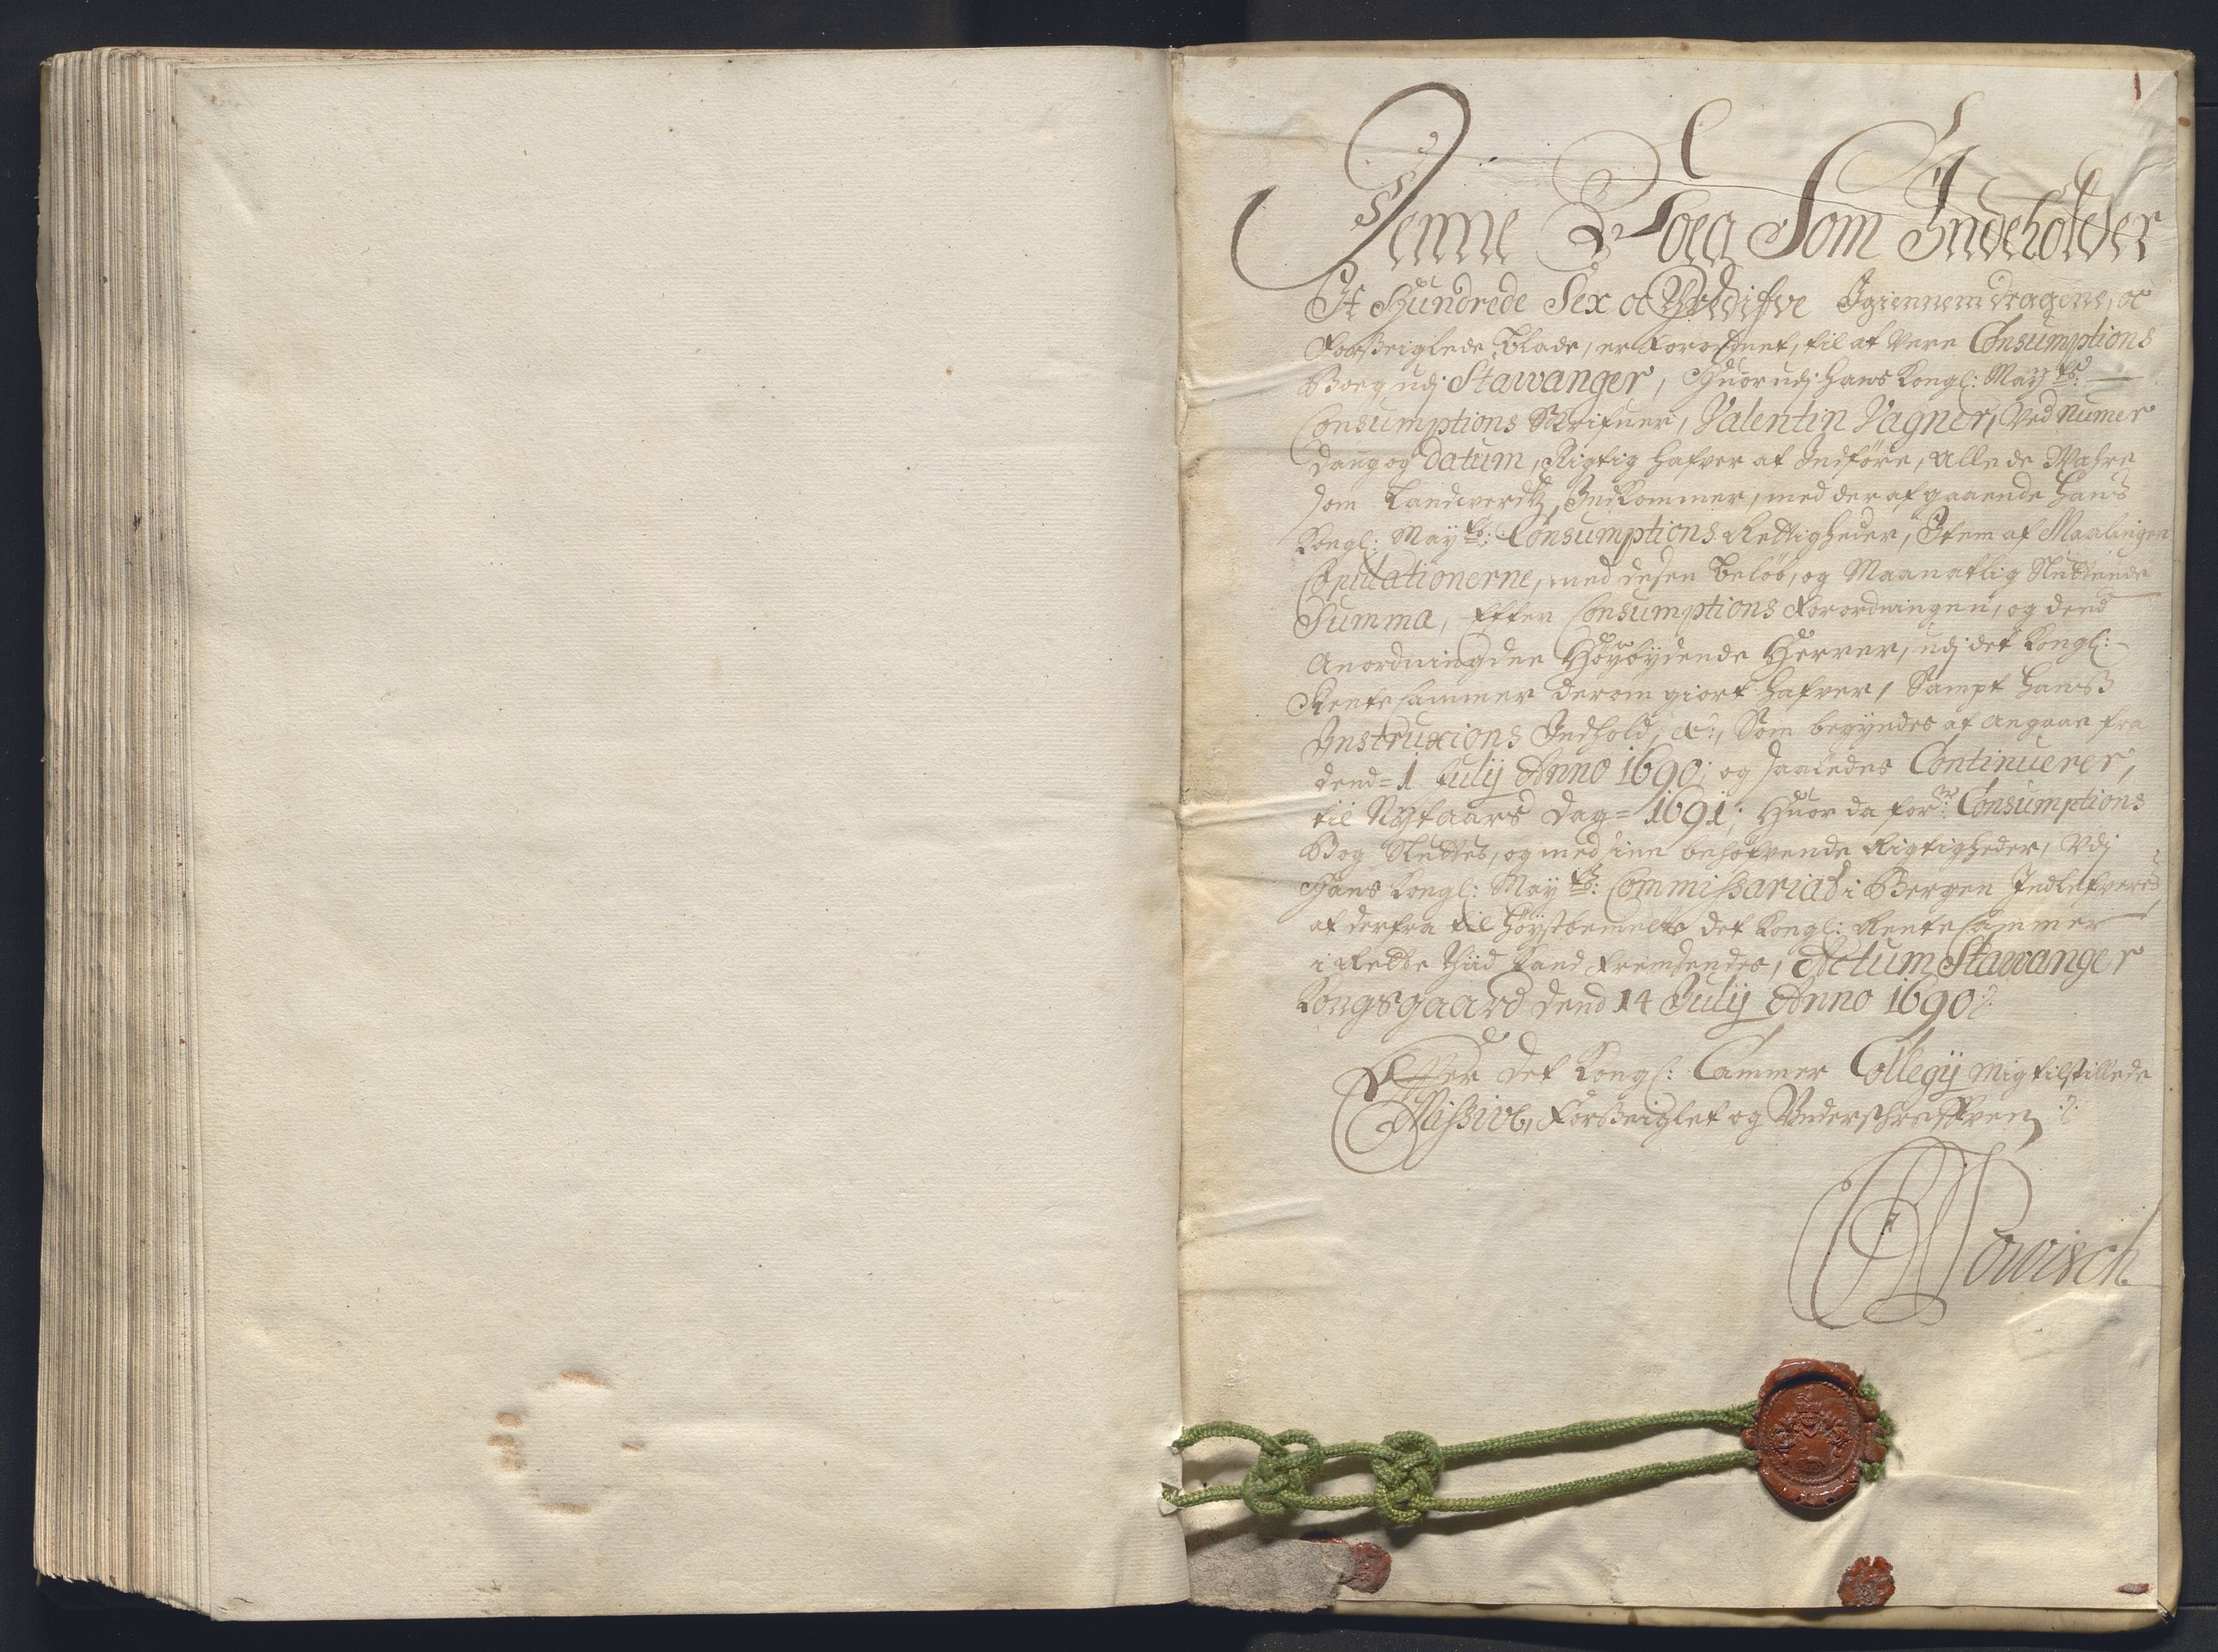 Denne Boeg Som Indeholder
It Hundrede Sex oc Tredifve Igiennemdragene, oc
Forßeiglede Blade, er forordnet, til at Vere Consumptions
Boeg udj Stawanger, Huorudj hans Kongl: May.ts:
Consumptions Skrifuer, Valentin Vagner, Ved Numer
Dang og Datum, Rigtig hafver at Indføre, alle de Wahre
som Landwerdtz, Indkommer, med der af gaaende Hans
Kongl: May.ts: Consumptions Rettigheder, Item af Maalingen
Copulationerne, med desen beløb, og Maanatlig Sluttende
Summa, Efter Consumptions Forordningen, og dend
Anordning den Høybydende Herrer, udj det Kongl:
Rentecammer derom giort hafver, Sampt hanß
Instruxions Indhold, &:, Som begyndes at angaae fra
dend= 1 Julij Anno 1690; og saaledes Continuerer,
til Nytaars Dag= 1691; Huor da for:ne Consumptions
Bog Sluttes, og med sine behøfvende Rigtigheder, Vdj
Hans Kongl: May.ts: Commißariat i Bergen Indlefveres,
at derfra til høystbemelte det Kongl: Rentecammer
i Rette Tiid kand fremsendes, Actum Stawanger
Kongsgaard dend 14 Julij Anno 1690
Efter det Kongl: Cammer Collegij mig tilstillede
Mißive, Forßeiglet og Underschreffven
Powisch